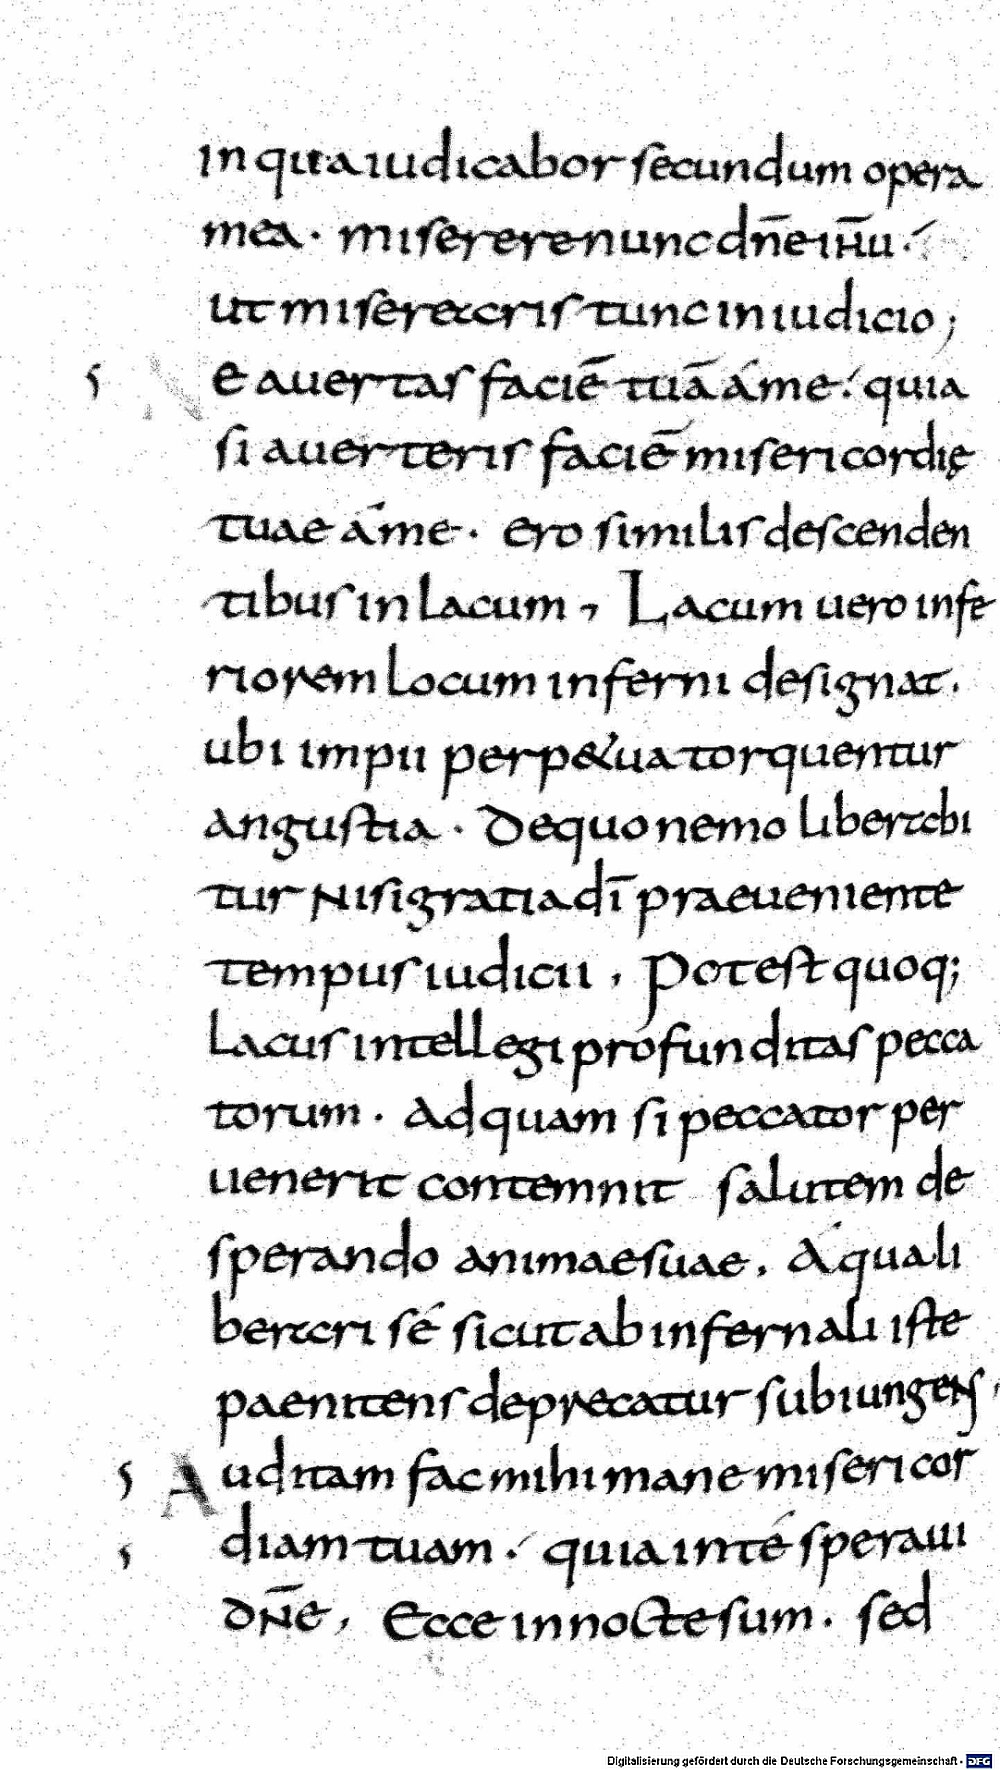 in qua iudicabor secundum opera
mea · miserere nunc dn̄e ih̄u ·
ut miserearis tunc in iudicio ;
Ne auertas faciē tuā á me ·́ quia
si auerteris faciē misericordię
tuae á me · ero similis descenden
tibus in lacum , Lacum uero infe
riorem locum inferni designat ·
ubi impii perp&ua torquentur
angustia · De quo nemo liberabi
tur Nisi gratia dī praeueniente
tempus iudicii , Potest quoq;
lacus intellegi profunditas pecca
torum · Ad quam si peccator per
uenerit contemnit salutem de
sperando animae suae , A qua li
berari sé sicut ab infernali iste
paenitens deprecatur subiungens ,
Auditam fac mihi mane misericor
diam tuam ·́ quia in té speraui
dn̄e , Ecce in nocte sum · sed
Digitalisierung gefördert durch die Deutsche Forschungsgemeinschaft - DFG